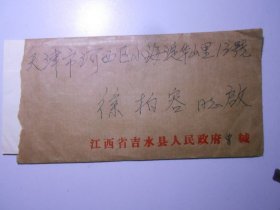 天津市河西区小海地华山里13號
徐柏容 啟
江西省吉水县人民政府 缄